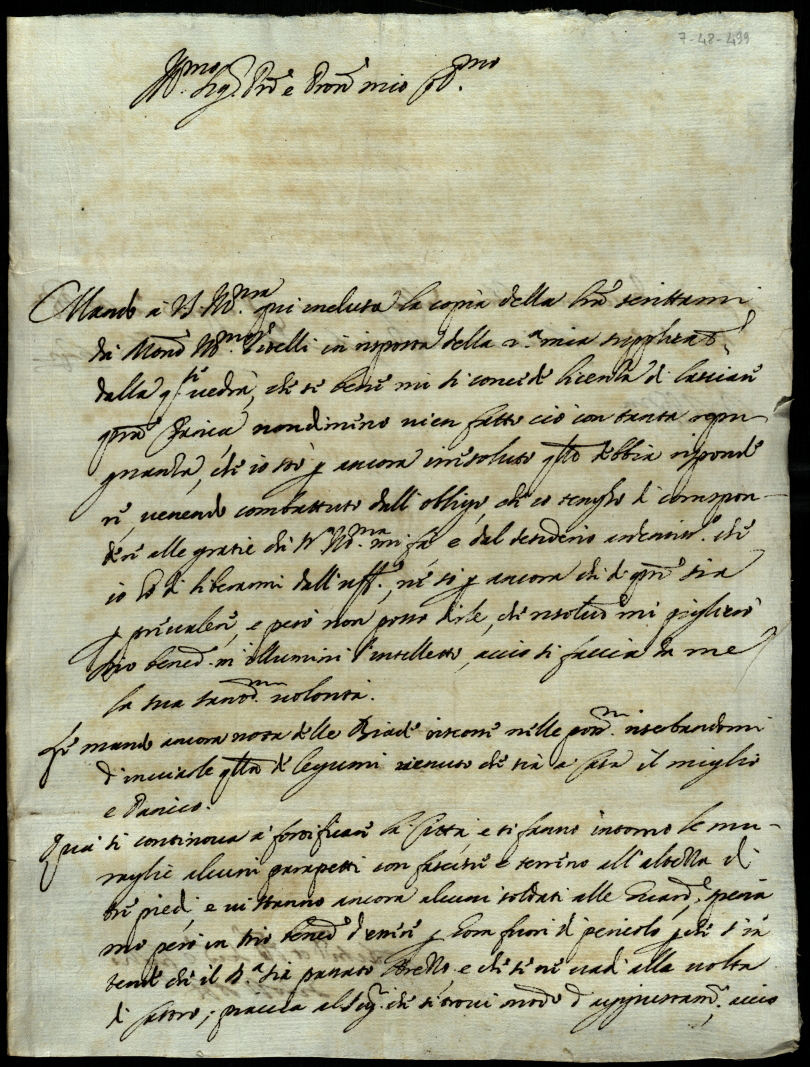 7-48-499
Ill.mo Sig.r Prõe e Prõn mio Col.mo
Mando à V.S. Ill.ma qui inclusa la copia della lrã scrittami
da Mons.r Ill.mo Vitelli in risposta della 2.a mia supplicat.e
dalla q.le vedrà, che se bene mi si concede licenza di lasciare
q.ta Carica nondimeno vien fatto ciò con tanta repu-
gnanza, che io stò p ancora irresoluto q.to debbia risponde
re, venendo combattuto dall'obligo, che io tengho di corrispon-
dere alle gratie che V.S. Ill.ma mi fà, e dal desiderio ardentiss.o che
io hò di liberarmi dall'uff.o, nè sò p ancora che di q.ti sia
p prevalere, e però non posso dirle, che resolut.e mi piglierò
Iddio bened.o m'illumini l'intelletto, acciò si faccia da me
la sua sant.ma volontà.
Le mando ancora nota delle Biade riscosse nelle poss.ni riserbandomi
d'inviarle q.lla de legumi venuto che sia a casa il miglio
e Panico.
Quà si continova à fortificare la Città, e si fanno intorno le mu-
raglie alcuni parapetti con fascine e terreno all'altezza di
tre piedi, e vi stanno ancora alcuni soldati alle Guardie, speria
mo però in Dio bened.o d'essere p hora fuori di pericolo, p che s'in
tende che il D.a sia passato et che se ne vadi alla volta
di piaccia al Sig.re che si trovi modo d'aggiustam.to, acciò